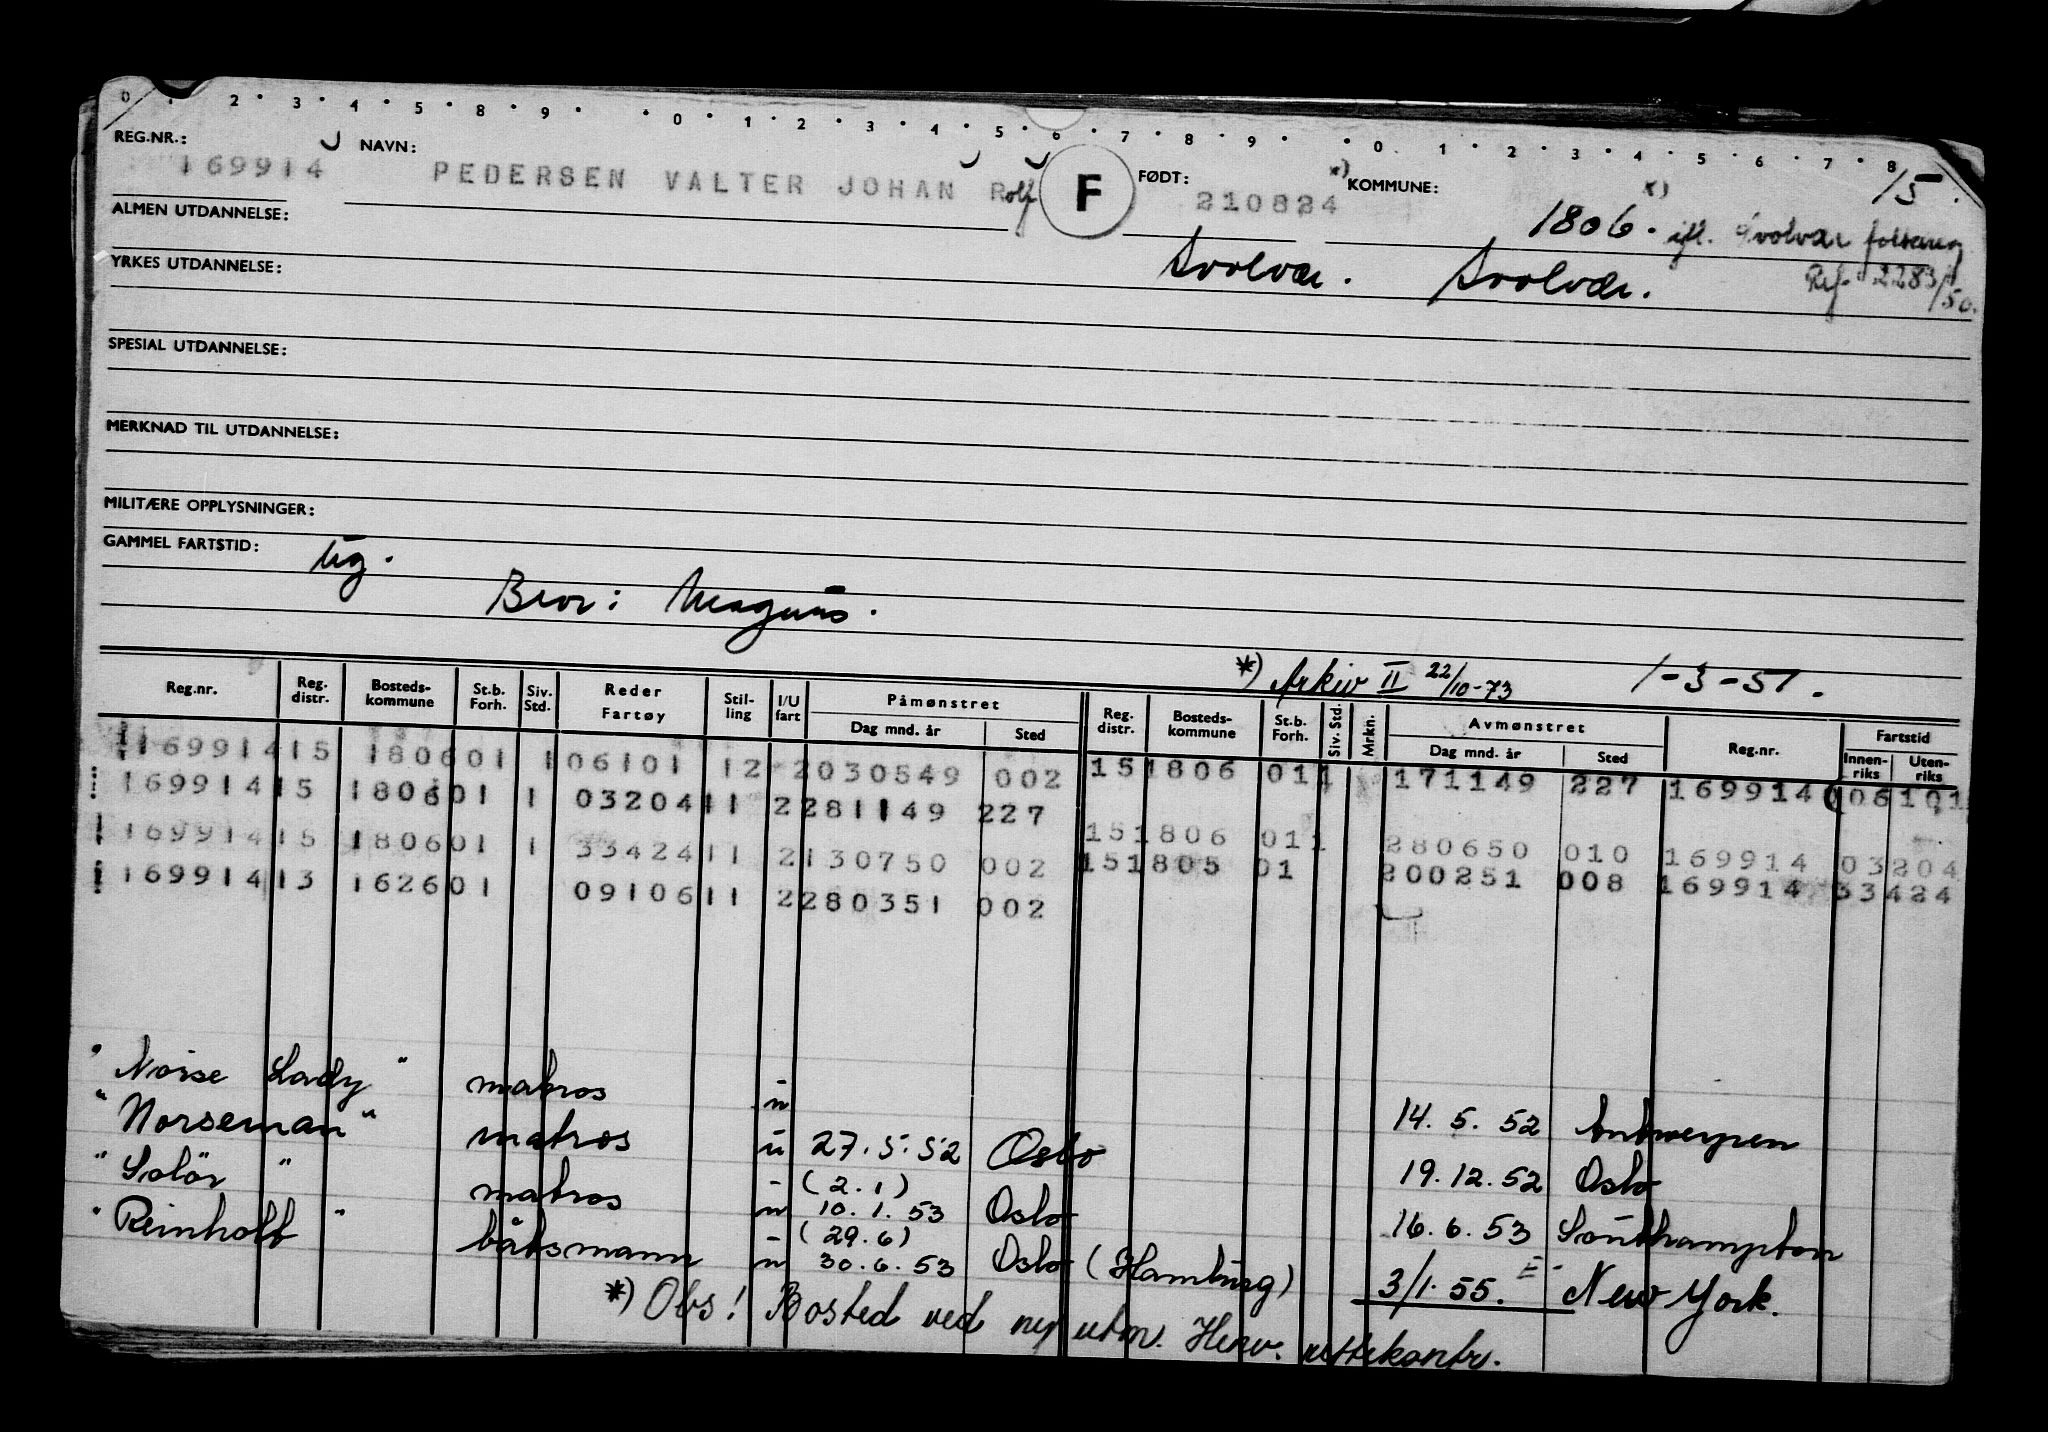 0 · 2 · 3 · 4 · 5 · 8 · 9 · · 0 · 1 · 2 · 3 · 4 · 5 · 6 · 7 · 8 · 9 · · 0 · 1 · 2 · 3 · 4 · 5 · 6 · 7 · 8
REG.NR.: 169914 NAVN: PEDERSEN VALTER JOHAN Rolf F FØDT: 210824 *) KOMMUNE: 1806. x) /5.
ifl. Svolvær
ALMEN UTDANNELSE: Svolvær. Svolvær. Ref. 2283/50.
YRKES UTDANNELSE:
SPESIAL UTDANNELSE:
MERKNAD TIL UTDANNELSE:
MILITÆRE OPPLYSNINGER:
GAMMEL FARTSTID: ug.
Bror: Magnus.
*) Arkiv II 22/10-73 1-3-51.
Reg.nr. Reg. distr. Bosteds-kommune St.b. Forh. Siv. Std. Reder Fartøy Stil-ling I/U fart Påmønstret Dag mnd. år Sted Reg. distr. Bosteds-kommune St.b. Forh. Siv. Std. Mrkn. Avmønstret Dag mnd. år Sted Reg.nr. Fartstid Innen-riks Uten-riks
169914 15 1806 01 1 06101 12 2 030549 002 15 1806 01 1 171149 227 169914 06101
169914 15 1806 01 1 03204 11 2 281149 227 15 1806 01 1 280650 010 169914 03204
169914 15 1806 01 1 33424 11 2 130750 002 15 1805 01 200251 008 169914 33424
169914 13 1626 01 09106 11 2 280351 002
"Norse Lady" matros u 14.5.52 Antwerpen
"Norseman" matros u 27.5.52 Oslo 19.12.52 Oslo
"Solör" matros u (2.1) 10.1.53 Oslo 16.6.53 Southampton
"Reinholt" båtsmann u (29.6) 30.6.53 Oslo (Hamburg) 3/1.55. New York.
*) Obs! Bosted ved ny utm. Henv. rettekontr.